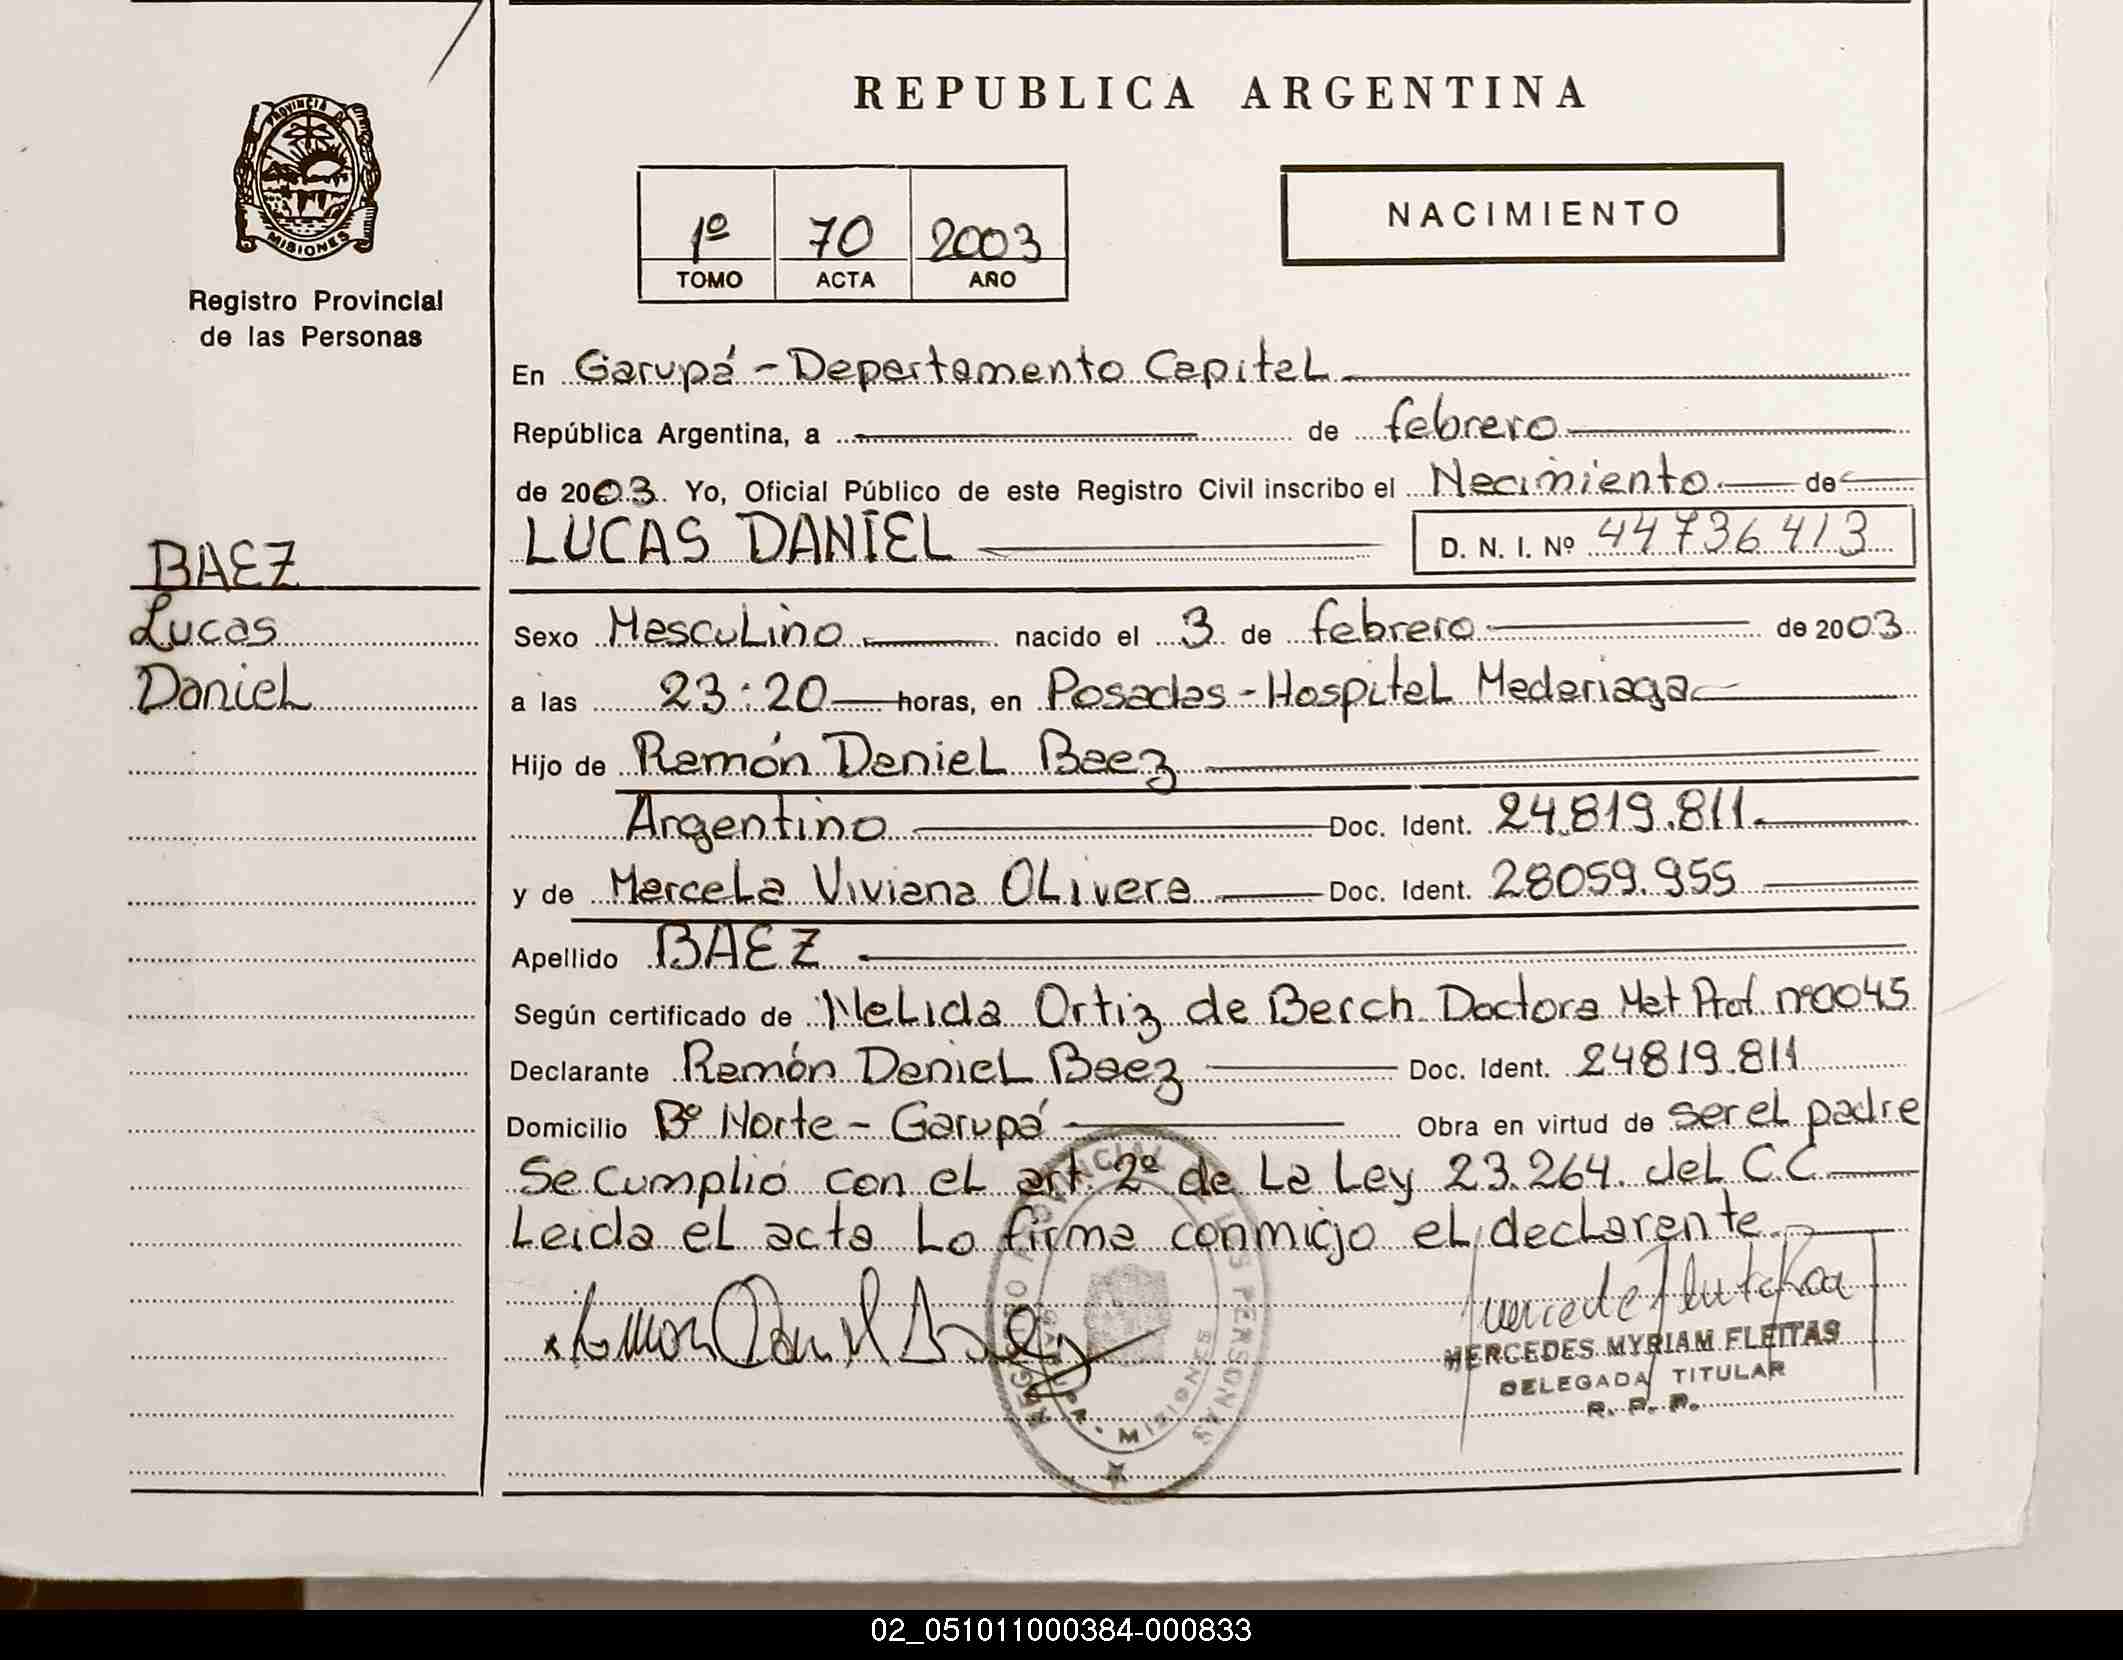 PROVINCIA DE
MISIONES
Registro Provincial
de las Personas
BAEZ
Lucas
Daniel
REPUBLICA ARGENTINA
1º 70 2003
TOMO ACTA AÑO
NACIMIENTO
En Garupá - Departamento Capital
República Argentina, a de febrero
de 2003. Yo, Oficial Público de este Registro Civil inscribo el Nacimiento de
LUCAS DANIEL D. N. I. Nº 44736413
Sexo Masculino nacido el 3 de febrero de 2003
a las 23:20 horas, en Posadas - Hospital Madariaga
Hijo de Ramón Daniel Baez
Argentino Doc. Ident. 24.819.811.
y de Marcela Viviana Olivera Doc. Ident. 28059.955
Apellido BAEZ
Según certificado de Nelida Ortiz de Berch Doctora Mat Prof. nº0045
Declarante Ramón Daniel Baez Doc. Ident. 24819.811
Domicilio Bº Norte - Garupá Obra en virtud de ser el padre
Se cumplió con el art. 2º de la Ley 23.264. del C.C.
Leida el acta lo firma conmigo el declarante
Ramon Daniel Baez
REGISTRO PROVINCIAL DE LAS PERSONAS
GARUPA - MISIONES
MERCEDES MYRIAM FLEITAS
DELEGADA TITULAR
R. P. P.
02_051011000384-000833